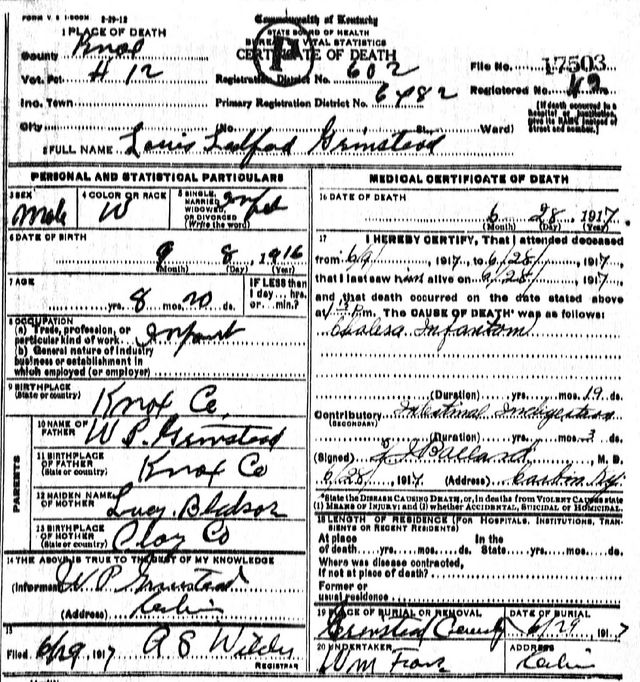 FORM V. S. 1-500M 3-29-12
Commonwealth of Kentucky
STATE BOARD OF HEALTH
BUREAU VITAL STATISTICS
CERTIFICATE OF DEATH
1 PLACE OF DEATH
County Knox
Vot. Pct. # 12
Inc. Town
City (No. St.; Ward)
Registration District No. 602
Primary Registration District No. 6482
File No. 17503
Registered No.
[If death occurred in a
hospital or institution,
give its NAME instead of
street and number.]
2 FULL NAME Louis Grinstead
PERSONAL AND STATISTICAL PARTICULARS
3 SEX Male
4 COLOR OR RACE W
5 SINGLE, MARRIED WIDOWED, OR DIVORCED (Write the word) Infant
6 DATE OF BIRTH
9 8 1916
(Month) (Day) (Year)
7 AGE
yrs. 8 mos. 20 ds.
IF LESS than
1 day... hrs.
or... min.?
8 OCCUPATION
(a) Trade, profession, or
particular kind of work Infant
(b) General nature of industry
business or establishment in
which employed (or employer)
9 BIRTHPLACE
(State or country) Knox Co.
PARENTS
10 NAME OF
FATHER W P. Grinstead
11 BIRTHPLACE
OF FATHER
(State or country) Knox Co
12 MAIDEN NAME
OF MOTHER Lucy Bledsoe
13 BIRTHPLACE
OF MOTHER
(State or country) Clay Co
14 THE ABOVE IS TRUE TO THE BEST OF MY KNOWLEDGE
(Informant) W P Grinstead
(Address) Corbin
15
Filed 6/29 1917 A S
REGISTRAR
MEDICAL CERTIFICATE OF DEATH
16 DATE OF DEATH
6 28 1917
(Month) (Day) (Year)
17 I HEREBY CERTIFY, That I attended deceased
from 6/9 1917 to 6/28, 1917,
that I last saw him alive on 28, 1917,
and that death occurred on the date stated above
at P m. The CAUSE OF DEATH was as follows:
Cholera Infantum
(Duration) yrs. mos. 19 ds.
Contributory Intestinal Indigestion
(SECONDARY)
(Duration) yrs. mos. 3 ds.
(Signed) Ballard, M. D.
6/28 1917 (Address) Corbin Ky.
*State the DISEASE CAUSING DEATH, or, in deaths from VIOLENT CAUSES state
(1) MEANS OF INJURY; and (2) whether ACCIDENTAL, SUICIDAL OR HOMICIDAL.
18 LENGTH OF RESIDENCE (FOR HOSPITALS, INSTITUTIONS, TRANSIENTS OR RECENT RESIDENTS)
At place In the
of death yrs. mos. ds. State yrs. mos. ds.
Where was disease contracted,
if not at place of death?
Former or
usual residence
19 PLACE OF BURIAL OR REMOVAL DATE OF BURIAL
Grinstead 6/29 1917
20 UNDERTAKER ADDRESS
Wm Corbin